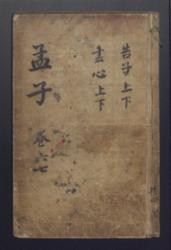 告子上下
心上下
孟子
卷六七